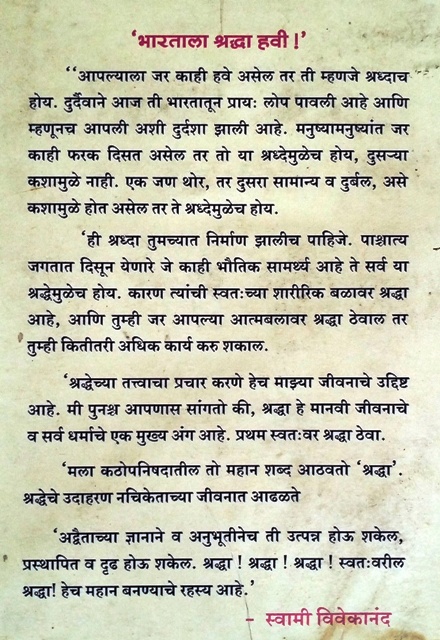 ‘भारताला श्रद्धा हवी !’
‘‘आपल्याला जर काही हवे असेल तर ती म्हणजे श्रध्दाच
होय. दुर्दैवाने आज ती भारतातून प्रायः लोप पावली आहे आणि
म्हणूनच आपली अशी दुर्दशा झाली आहे. मनुष्यामनुष्यांत जर
काही फरक दिसत असेल तर तो या श्रध्देमुळेच होय, दुसऱ्या
कशामुळे नाही. एक जण थोर, तर दुसरा सामान्य व दुर्बल, असे
कशामुळे होत असेल तर ते श्रध्देमुळेच होय.
‘ही श्रध्दा तुमच्यात निर्माण झालीच पाहिजे. पाश्चात्य
जगतात दिसून येणारे जे काही भौतिक सामर्थ्य आहे ते सर्व या
श्रद्धेमुळेच होय. कारण त्यांची स्वतःच्या शारीरिक बळावर श्रद्धा
आहे, आणि तुम्ही जर आपल्या आत्मबलावर श्रद्धा ठेवाल तर
तुम्ही कितीतरी अधिक कार्य करु शकाल.
‘श्रद्धेच्या तत्त्वाचा प्रचार करणे हेच माझ्या जीवनाचे उद्दिष्ट
आहे. मी पुनश्च आपणास सांगतो की, श्रद्धा हे मानवी जीवनाचे
व सर्व धर्माचे एक मुख्य अंग आहे. प्रथम स्वतःवर श्रद्धा ठेवा.
‘मला कठोपनिषदातील तो महान शब्द आठवतो ‘श्रद्धा’.
श्रद्धेचे उदाहरण नचिकेताच्या जीवनात आढळते
‘अद्वैताच्या ज्ञानाने व अनुभूतीनेच ती उत्पन्न होऊ शकेल,
प्रस्थापित व दृढ होऊ शकेल. श्रद्धा ! श्रद्धा ! श्रद्धा ! स्वतःवरील
श्रद्धा! हेच महान बनण्याचे रहस्य आहे.’
- स्वामी विवेकानंद